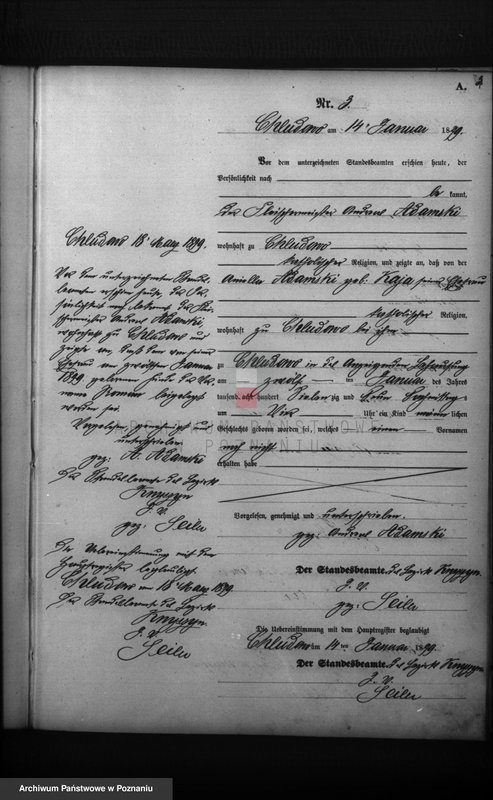 A. 3
Nr. 3.
Chludowo am 14. Januar 1899.
Vor dem unterzeichneten Standesbeamten erschien heute, der
Persönlichkeit nach
be kannt,
der Fleischermeister Andreas Adamski
wohnhaft zu Chludowo
katholischer Religion, und zeigte an, daß von der
Aniella Adamski geb. Kaja seiner Ehefrau
katholischer Religion,
wohnhaft zu Chludowo bei ihm
zu Chludowo in des Anzeigenden Behausung
am zwölf ten Januar des Jahres
tausend acht hundert neun zig und
um Vier Uhr ein Kind männlichen
Geschlechts geboren worden sei, welches einen Vornamen
noch nicht
erhalten habe
Vorgelesen, genehmigt und unterschrieben.
gez. Andreas Adamski
Der Standesbeamte. des Bezirks
J. V.
gez. Seiler
Die Uebereinstimmung mit dem Hauptregister beglaubigt
Chludowo am 14ten Januar 1899.
Der Standesbeamte. des Bezirks
J. V.
Seiler
Chludowo 18. März 1899.
Vor dem unterzeichneten Standes-
beamten erschien heute, der Per-
sönlichkeit nach bekannt, der Flei-
schermeister Andreas Adamski,
wohnhaft zu Chludowo und
zeigte an, daß dem von seiner
Ehefrau am zwölften Januar
1899 geborenen Kinde der Vor-
name Roman beigelegt
worden sei.
Vorgelesen, genehmigt und
unterschrieben
gez. A. Adamski
Der Standesbeamte des Bezirks
J. V.
gez. Seiler
Die Uebereinstimmung mit dem
Hauptregister beglaubigt
Chludowo am 18. März 1899.
Der Standesbeamte des Bezirks
J. V.
Seiler
POZNANIU
Archiwum Państwowe w Poznaniu